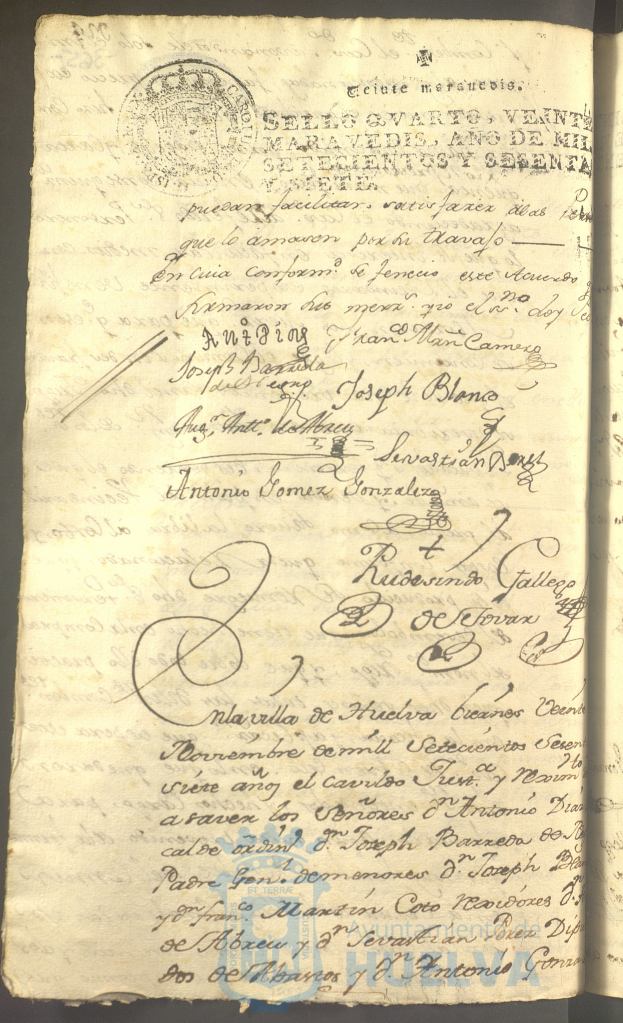 Veinte maravedis.
SELLO QVARTO, VEINTE
MARAVEDIS, AÑO DE MIL
SETECIENTOS Y SESENTA
Y SIETE.
CAROLUS
puedan facilitar, satisfaxer
que lo amasen por su travajo
En cuia conformd. se fenecio este Acuerdo
firmaron sus merz. yo el sno doy
Franco Mrn Camero
Joseph Barreda
Joseph Blanco
Antto. de Abreu
Sevastian Perez
Antonio Gomez Gonzalez
Rudesindo Gallego
de Tovar
Enla villa de Huelva biernes Veinte
Noviembre de mill Setecientos Sesen
siete años el cavildo Justa. y Reximto
a saver los Señores dn. Antonio Dia
calde ordinl. dn. Joseph Barreda de
Padre Genl. de menores dn. Joseph Blan
y dn. franco. Martin Coto rexidores dn.
de Abreu y dn. Sevastian Perez Dipu
dos de Abastos y dn. Antonio Gonza
Ayuntamiento de
HUELVA